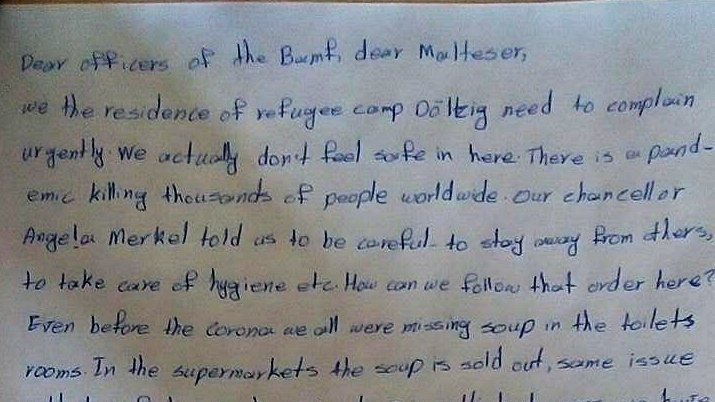 Dear officers of the Bamf, dear Malteser,
we the residence of refugee camp Dölzig need to complain
urgently. We actually don't feel safe in here. There is a pand-
emic killing thousands of people worldwide. Our chancellor
Angela Merkel told us to be careful. to stay away from thers,
to take care of hygiene etc. How can we follow that order here?
Even before the Corona we all were missing soup in the toilets
rooms. In the supermarkets the soup is sold out, same issue